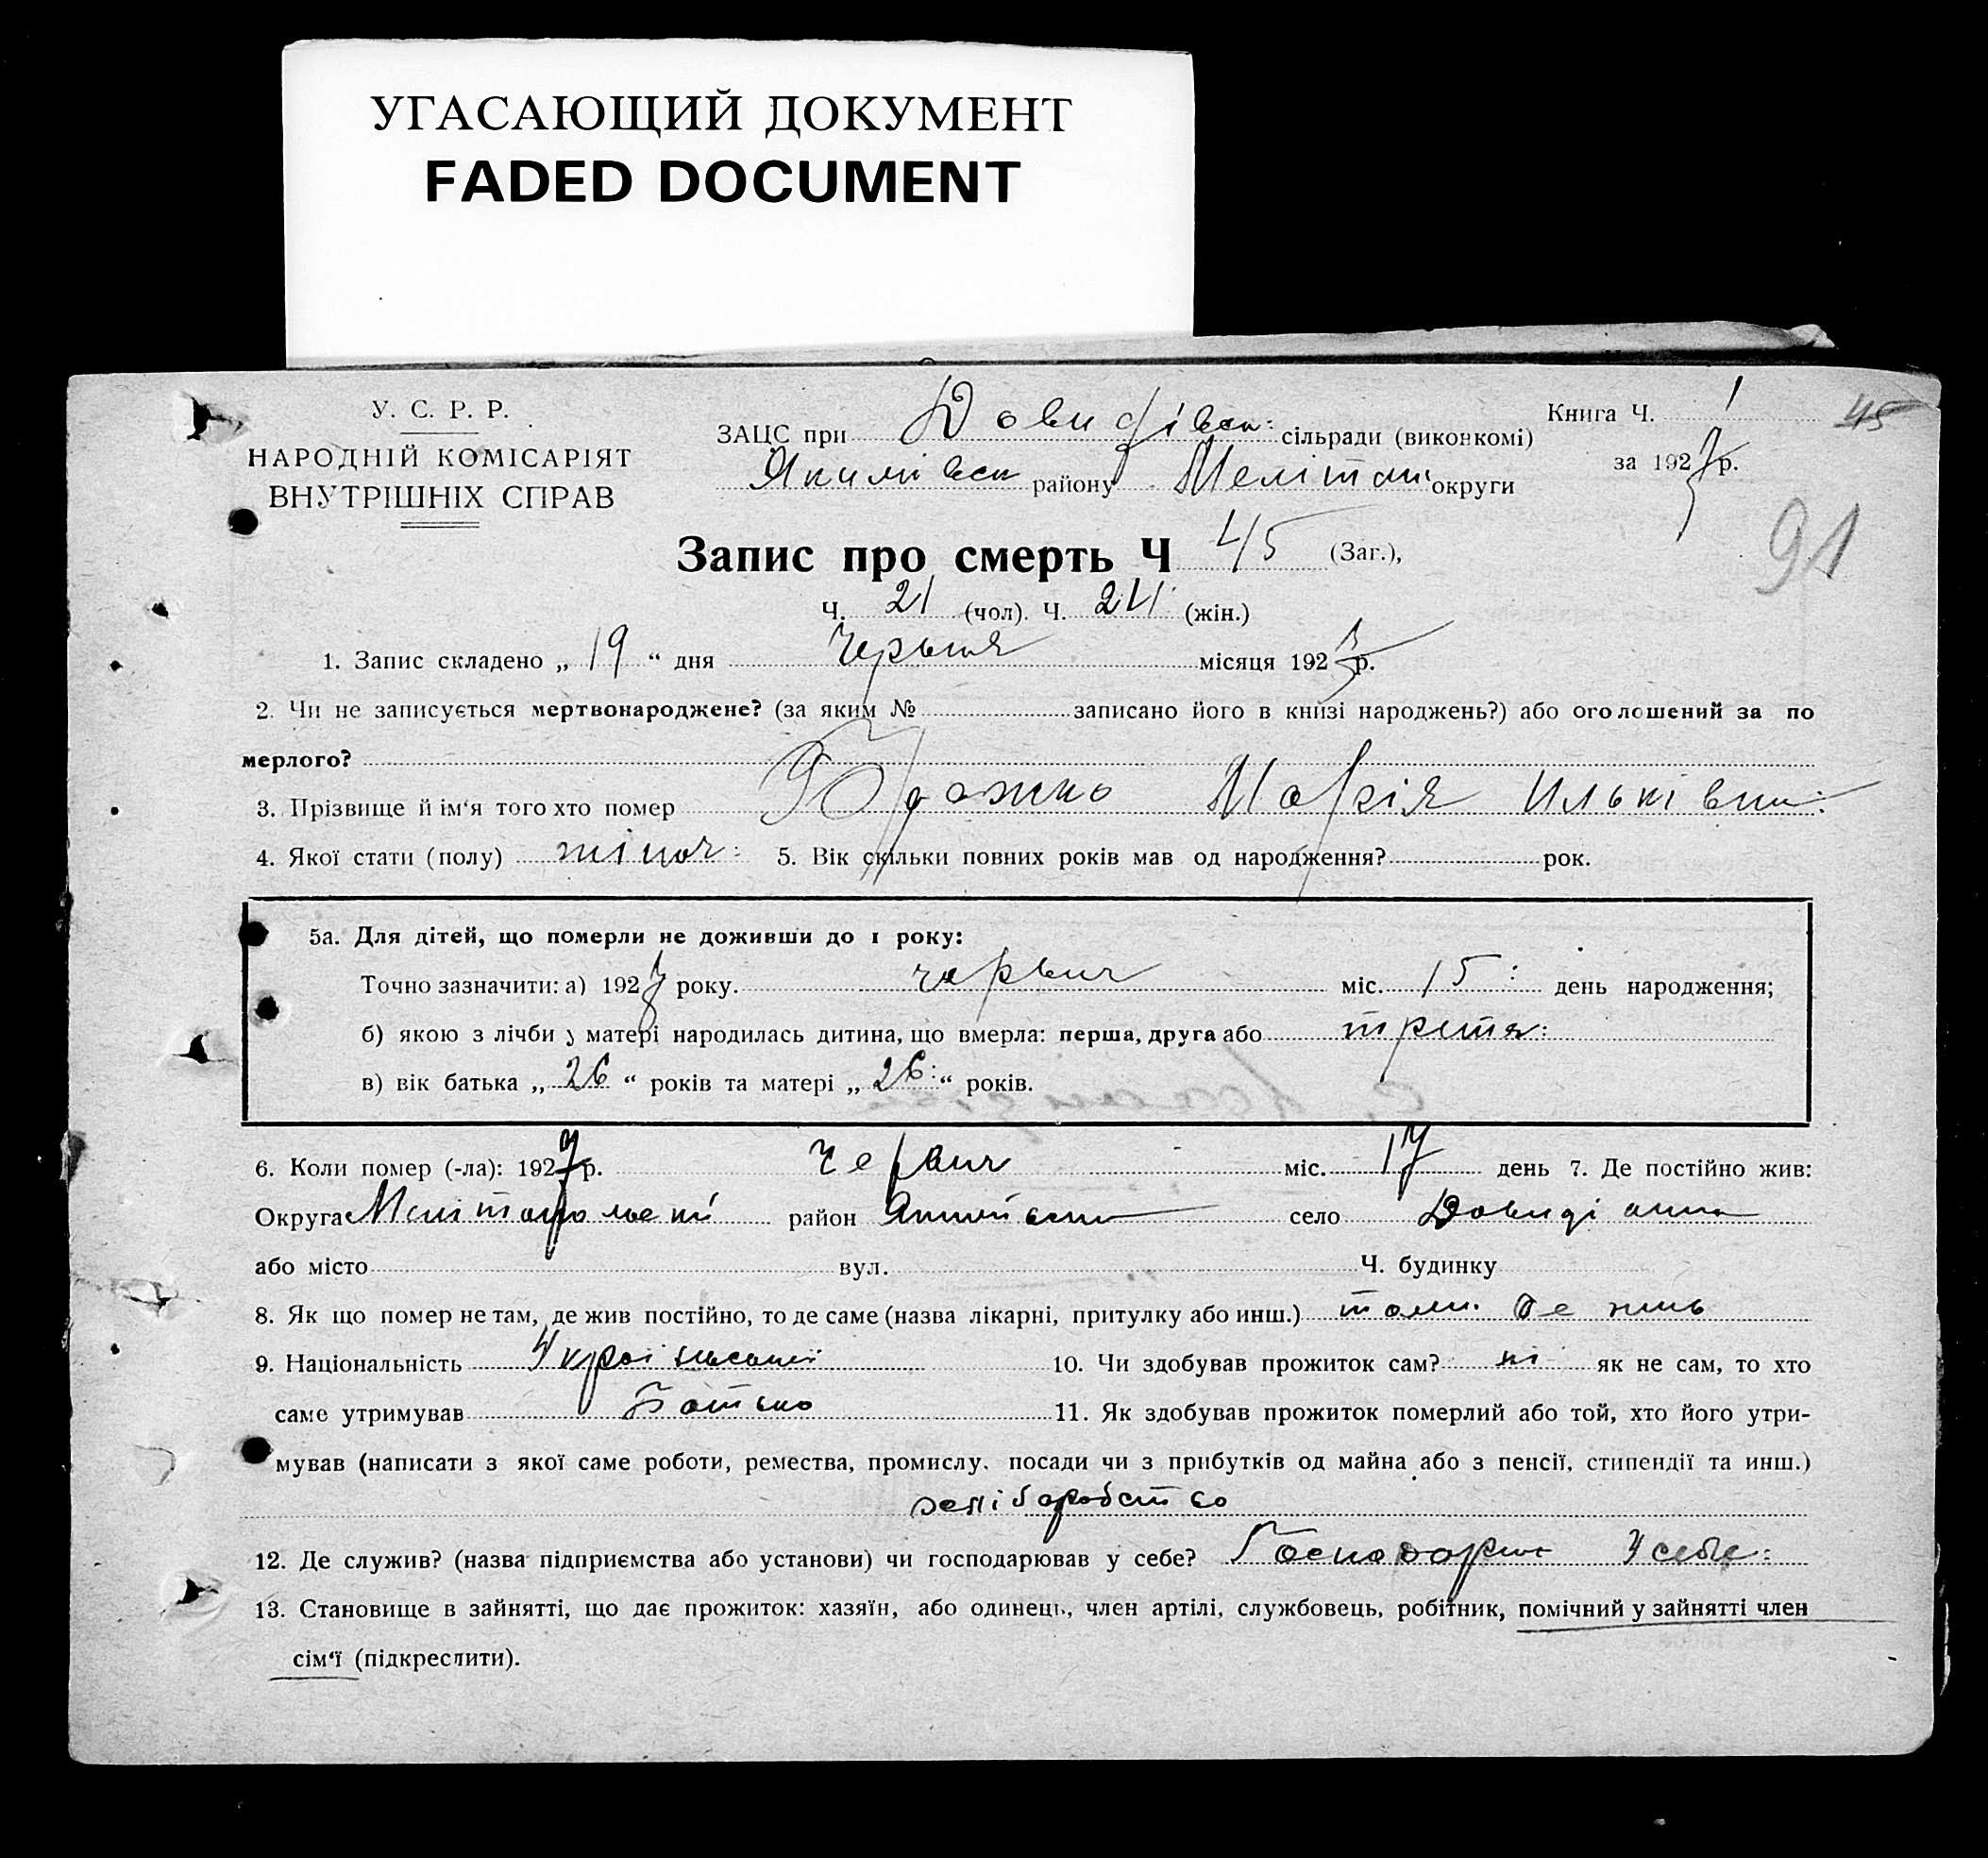 УГАСАЮЩИЙ ДОКУМЕНТ
FADED DOCUMENT
У. С. Р. Р.
НАРОДНІЙ КОМІСАРІЯТ
ВНУТРІШНІХ СПРАВ
ЗАЦС при Довидівск: сільради (виконкомі)
Якимівск району Мелітоп. округи
Книга Ч. 1
45
за 1927 р.
91
Запис про смерть Ч 45 (Заг.),
Ч. 21 (чол). Ч. 24 (жін.)
1. Запис складено „ 19 “ дня червня місяця 1927 р.
2. Чи не записується мертвонароджене? (за яким № записано його в книзі народжень?) або оголошений за по
мерлого?
3. Прізвище й ім‘я того хто помер Марія Ильківна:
4. Якої стати (полу) жіноч: 5. Вік скільки повних років мав од народження? рок.
5а. Для дітей, що померли не доживши до 1 року:
Точно зазначити: а) 1927 року. червня міс. 15: день народження;
б) якою з лічби у матері народилась дитина, що вмерла: перша, друга або третя:
в) вік батька „ 26 “ років та матері „ 26: “ років.
6. Коли помер (-ла): 1927 р. червня міс. 17 день 7. Де постійно жив:
Округа Мелітопольскі район Якимівськи село Довидівка
або місто вул. Ч. будинку
8. Як що помер не там, де жив постійно, то де саме (назва лікарні, притулку або инш.) там де жив
9. Національність Українській 10. Чи здобував прожиток сам? ні як не сам, то хто
саме утримував Батько 11. Як здобував прожиток померлий або той, хто його утри-
мував (написати з якої саме роботи, ремества, промислу, посади чи з прибутків од майна або з пенсії, стипендії та инш.)
хліборобство
12. Де служив? (назва підприємства або установи) чи господарював у себе? Господарює У себе:
13. Становище в зайнятті, що дає прожиток: хазяїн, або одинець, член артілі, службовець, робітник, помічний у зайнятті член
сім‘ї (підкреслити).